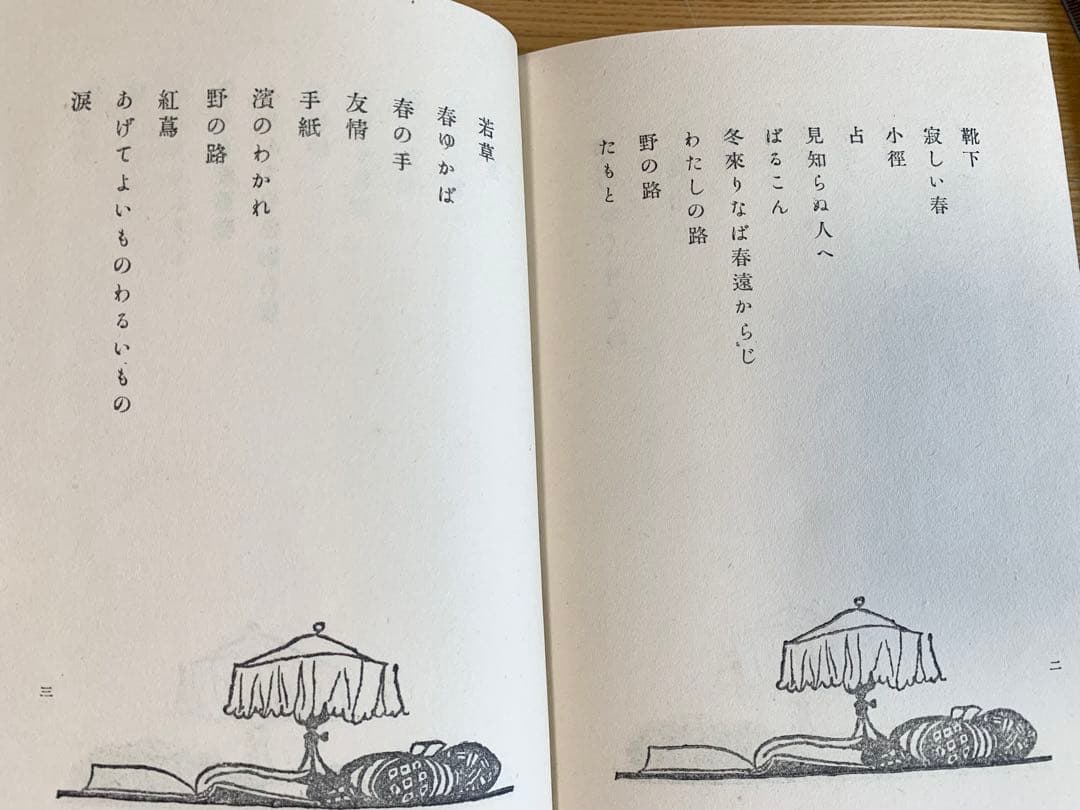 靴下
寂しい春
小徑
占
見知らぬ人へ
ばるこん
冬來りなば春遠からじ
わたしの路
野の路
たもと
二
若草
春ゆかば
春の手
友情
手紙
濱のわかれ
野の路
紅蔦
あげてよいものわるいもの
淚
三